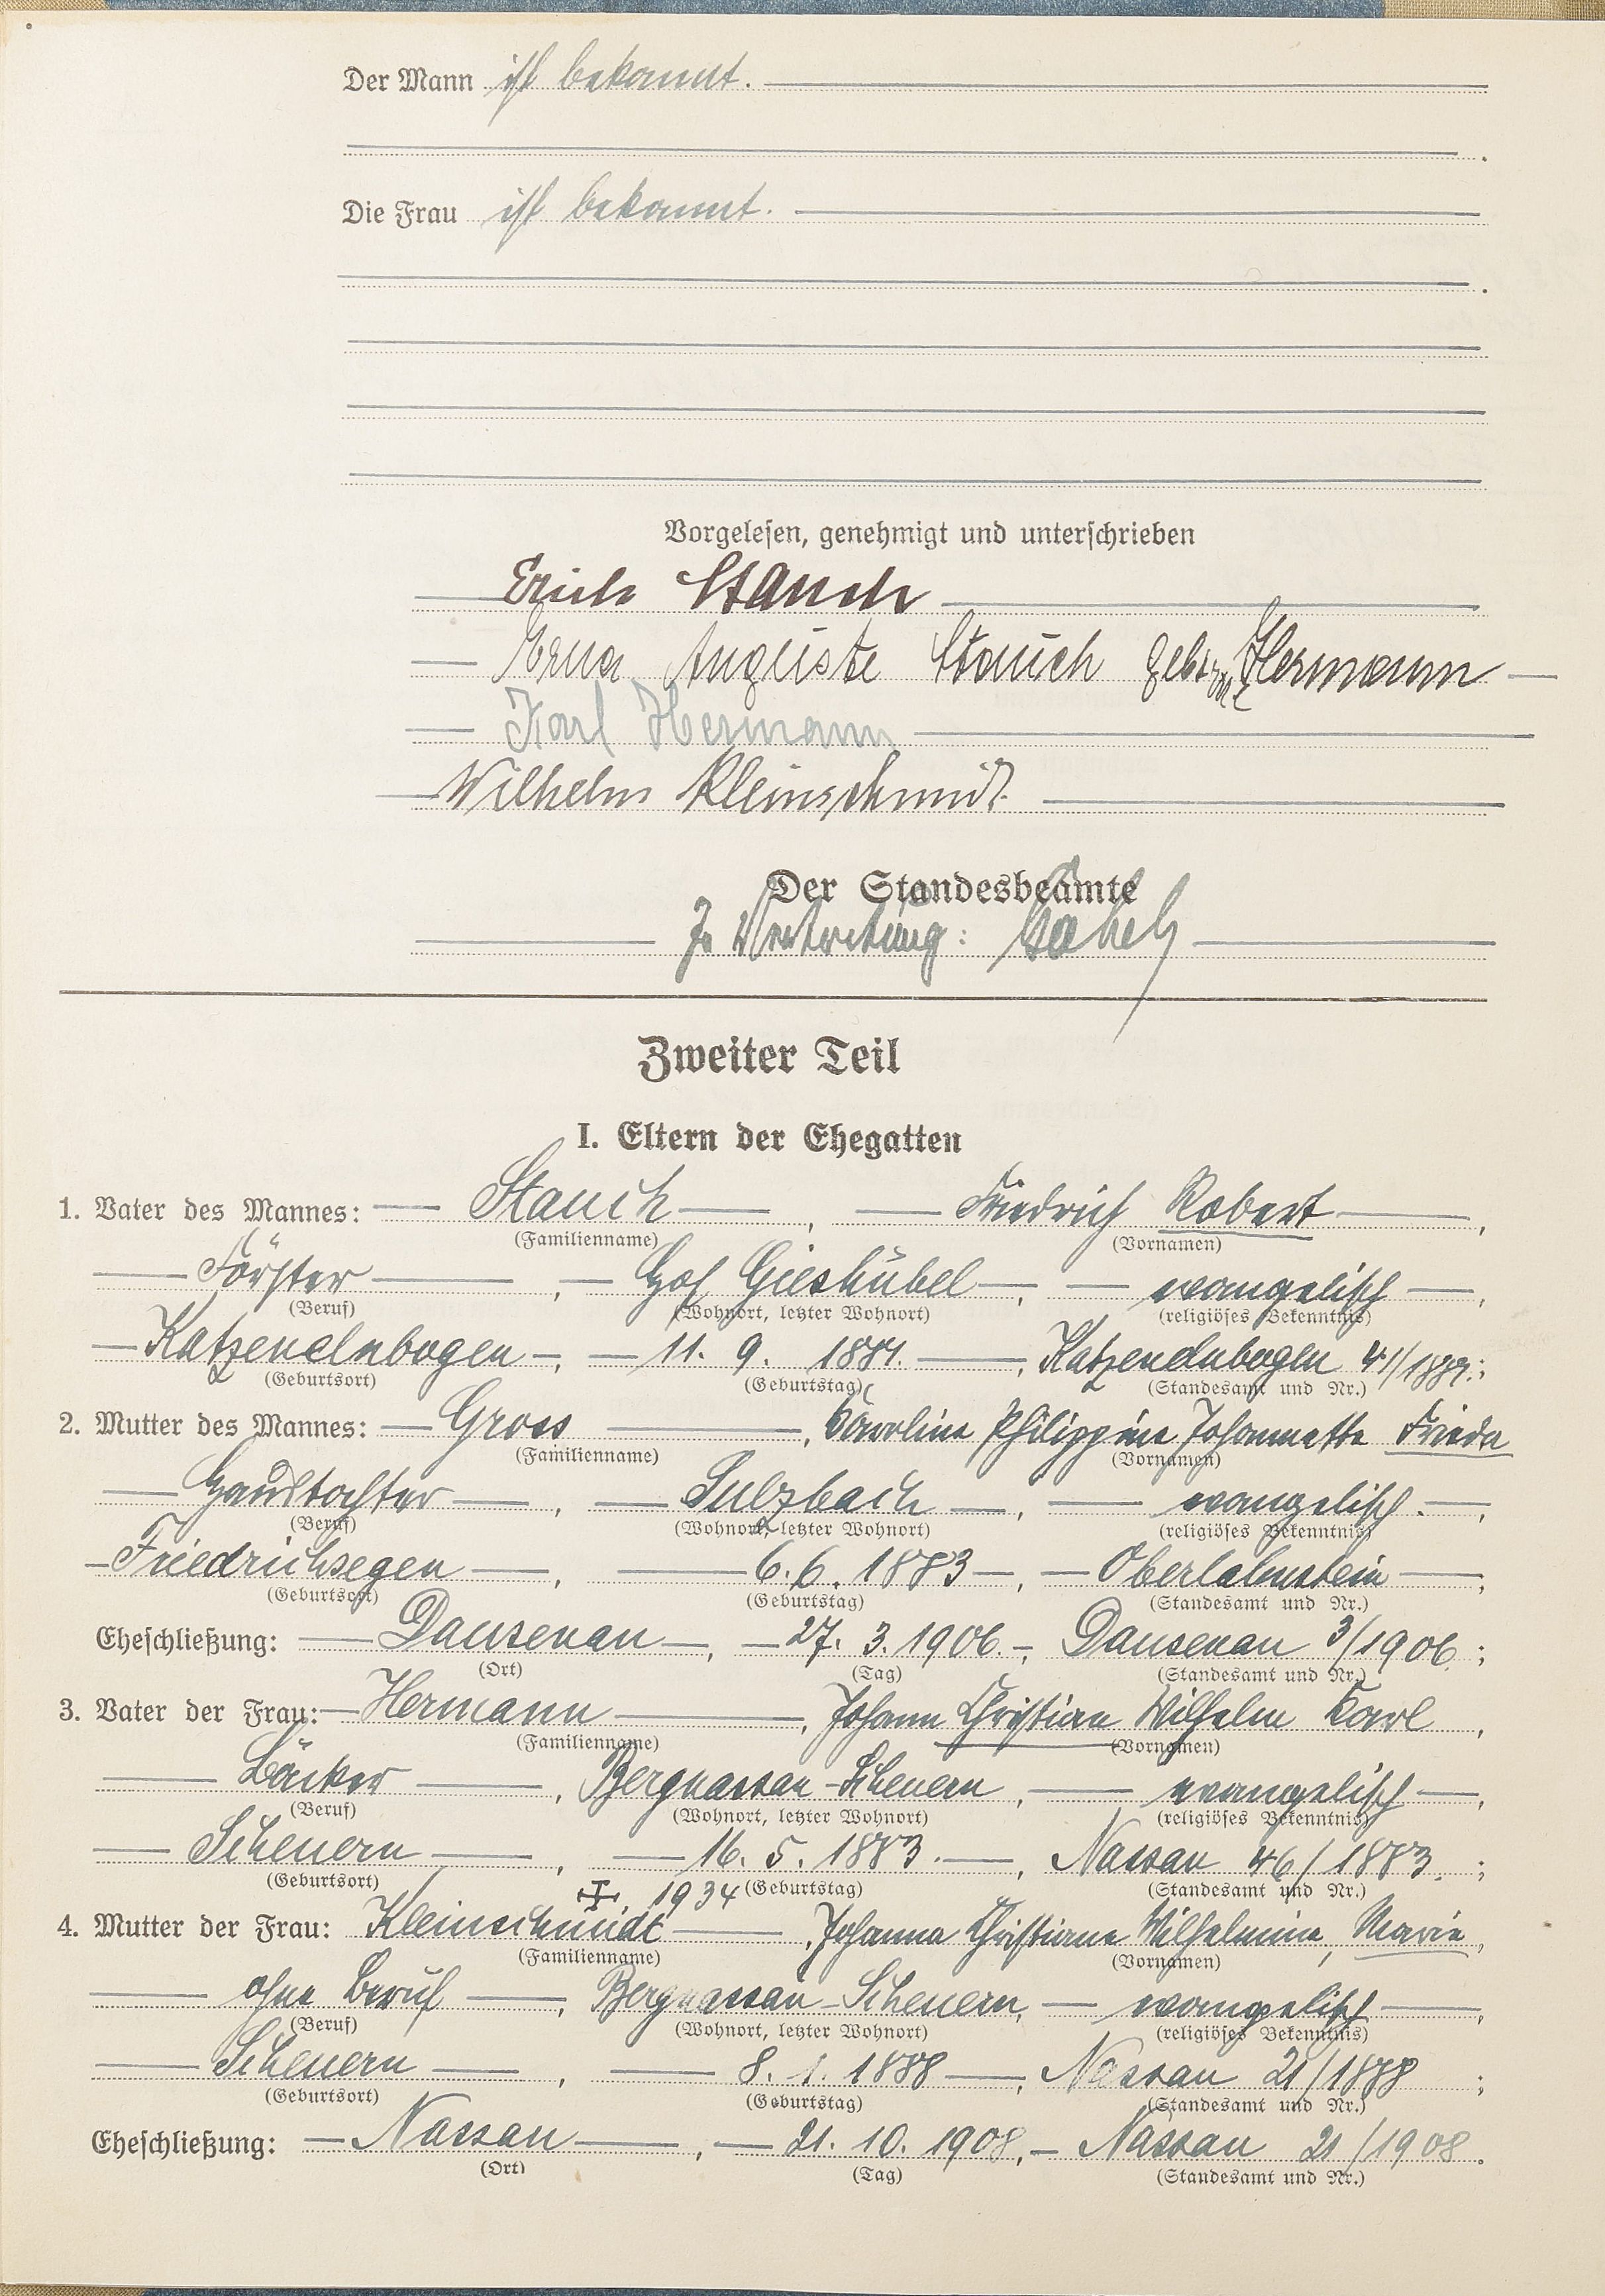 Der Mann ist bekannt.
Die Frau ist bekannt.
Vorgelesen, genehmigt und unterschrieben
Erich Stauch
Erna Auguste Stauch geb. Hermann
Karl Hermann
Wilhelm Kleinschmidt
Der Standesbeamte
In Vertretung:
Zweiter Teil
I. Eltern der Ehegatten
1. Vater des Mannes: Stauch, Friedrich Robert,
(Familienname) (Vornamen)
Förster, Hof Gieshübel, evangelisch,
(Beruf) (Wohnort, letzter Wohnort) (religiöses Bekenntnis)
Katzenelnbogen, 11. 9. 1881., Katzenelnbogen 41/1881.;
(Geburtsort) (Geburtstag) (Standesamt und Nr.)
2. Mutter des Mannes: Gross, Caroline Philippine Johannette Frieda
(Familienname) (Vornamen)
Haustochter, Sulzbach, evangelisch.,
(Beruf) (Wohnort, letzter Wohnort) (religiöses Bekenntnis)
Friedrichsegen, 6. 6. 1883, Oberlahnstein;
(Geburtsort) (Geburtstag) (Standesamt und Nr.)
Eheschließung: Dausenau, 27. 3. 1906., Dausenau 3/1906.;
(Ort) (Tag) (Standesamt und Nr.)
3. Vater der Frau: Hermann, Johann Christian Wilhelm Karl,
(Familienname) (Vornamen)
Bäcker, Bergnassau-Scheuern, evangelisch,
(Beruf) (Wohnort, letzter Wohnort) (religiöses Bekenntnis)
Scheuern, 16. 5. 1883., Nassau 46/1883.;
(Geburtsort) (Geburtstag) (Standesamt und Nr.)
1934
4. Mutter der Frau: Kleinschmidt, Johanna Christiane Wilhelmine, Marie,
(Familienname) (Vornamen)
ohne Beruf, Bergnassau-Scheuern, evangelisch,
(Beruf) (Wohnort, letzter Wohnort) (religiöses Bekenntnis)
Scheuern, 8. 1. 1888, Nassau 21/1888;
(Geburtsort) (Geburtstag) (Standesamt und Nr.)
Eheschließung: Nassau, 21. 10. 1908, Nassau 21/1908.
(Ort) (Tag) (Standesamt und Nr.)